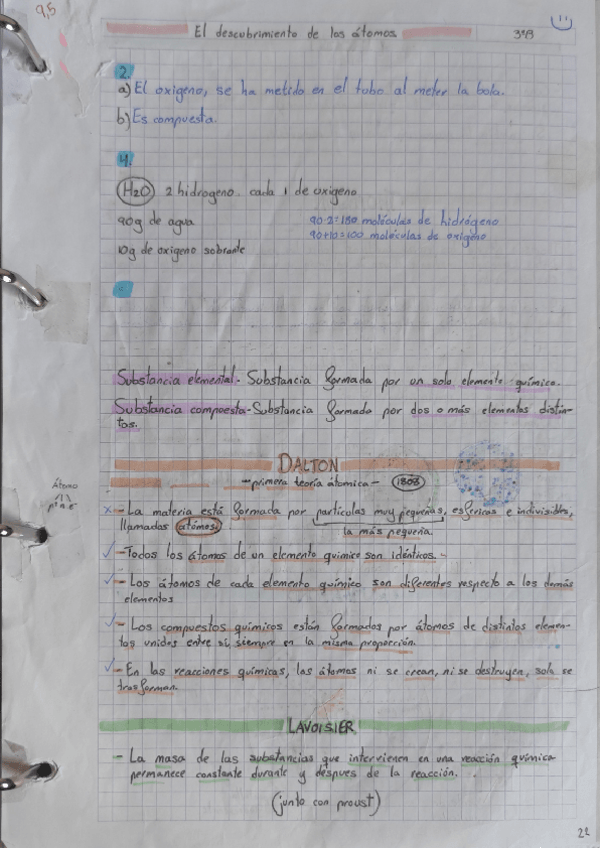 9,5
El descubrimiento de los átomos
3ºB
2.
a) El oxigeno, se ha metido en el tubo al meter la bola.
b) Es compuesta.
4.
H2O 2 hidrogeno. cada 1 de oxigeno
90g de agua
90·2=180 moléculas de hidrógeno
90+10=100 moléculas de oxigeno
10g de oxigeno sobrante
Substancia elemental- Substancia formada por un solo elemento químico.
Substancia compuesta- Substancia formada por dos o más elementos distin-
tos.
DALTON
-primera teoría átomica- 1808
Átomo
p+ n e-
x - La materia está formada por partículas muy pequeñas, esfericas e indivisibles,
llamadas atómos.
la más pequeña.
- Todos los átomos de un elemento quimico son idénticos.-
- Los átomos de cada elemento químico son diferentes respecto a los demás
elementos
- Los compuestos químicos están formados por átomos de distintos elemen-
tos unidos entre sí, siempre en la misma proporción.
- En las reacciones químicas, los átomos ni se crean, ni se destruyen, solo se
trasforman.
LAVOISIER
- La masa de las substancias que intervienen en una reacción química
permanece constante durante y despues de la reacción.
(junto con proust)
22